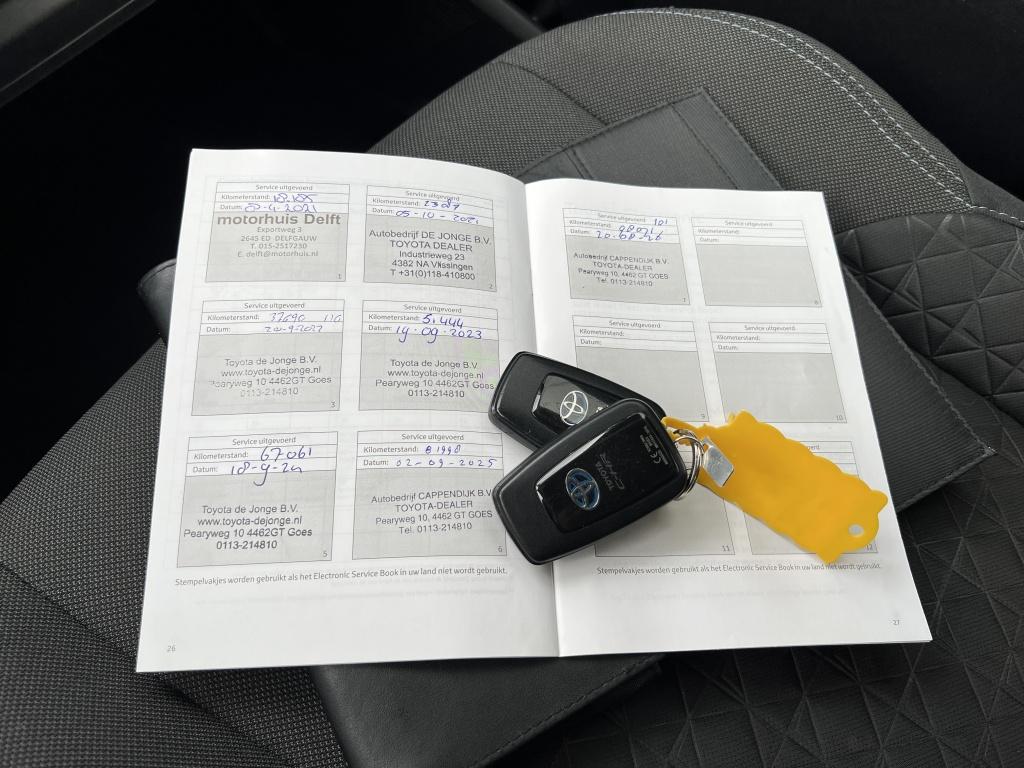 Service uitgevoerd
Kilometerstand:
Datum: 8-4-2021
motorhuis Delft
Exportweg 3
2645 ED DELFGAUW
T. 015-2517230
E. delft@motorhuis.nl
1
Service uitgevoerd
Kilometerstand:
Datum: 05-10-2021
Autobedrijf DE JONGE B.V.
TOYOTA DEALER
Industrieweg 23
4382 NA Vlissingen
T +31(0)118-410800
2
Service uitgevoerd
Kilometerstand: 37690
Datum:
Toyota de Jonge B.V.
www.toyota-dejonge.nl
Pearyweg 10 4462GT Goes
0113-214810
3
Service uitgevoerd
Kilometerstand: 51.444
Datum: 19-09-2023
Toyota de Jonge B.V.
www.toyota-dejonge.nl
Pearyweg 10 4462GT Goes
0113-214810
Service uitgevoerd
Kilometerstand: 67061
Datum: 18-9-24
Toyota de Jonge B.V.
www.toyota-dejonge.nl
Pearyweg 10 4462GT Goes
0113-214810
5
Service uitgevoerd
Kilometerstand: 81990
Datum: 02-09-2025
Autobedrijf CAPPENDIJK B.V.
TOYOTA-DEALER
Pearyweg 10, 4462 GT GOES
Tel. 0113-214810
6
Stempelvakjes worden gebruikt als het Electronic Service Book in uw land niet wordt gebruikt.
26
Service uitgevoerd
Kilometerstand:
Datum:
Autobedrijf CAPPENDIJK B.V.
TOYOTA-DEALER
Pearyweg 10, 4462 GT GOES
Tel. 0113-214810
7
Service uitgevoerd
Kilometerstand:
Datum:
8
Service uitgevoerd
Kilometerstand:
Datum:
9
Service uitgevoerd
Kilometerstand:
Datum:
10
11
12
Stempelvakjes worden gebruikt als het Electronic Service Book in uw land niet wordt gebruikt.
27
TOYOTA
C-HR